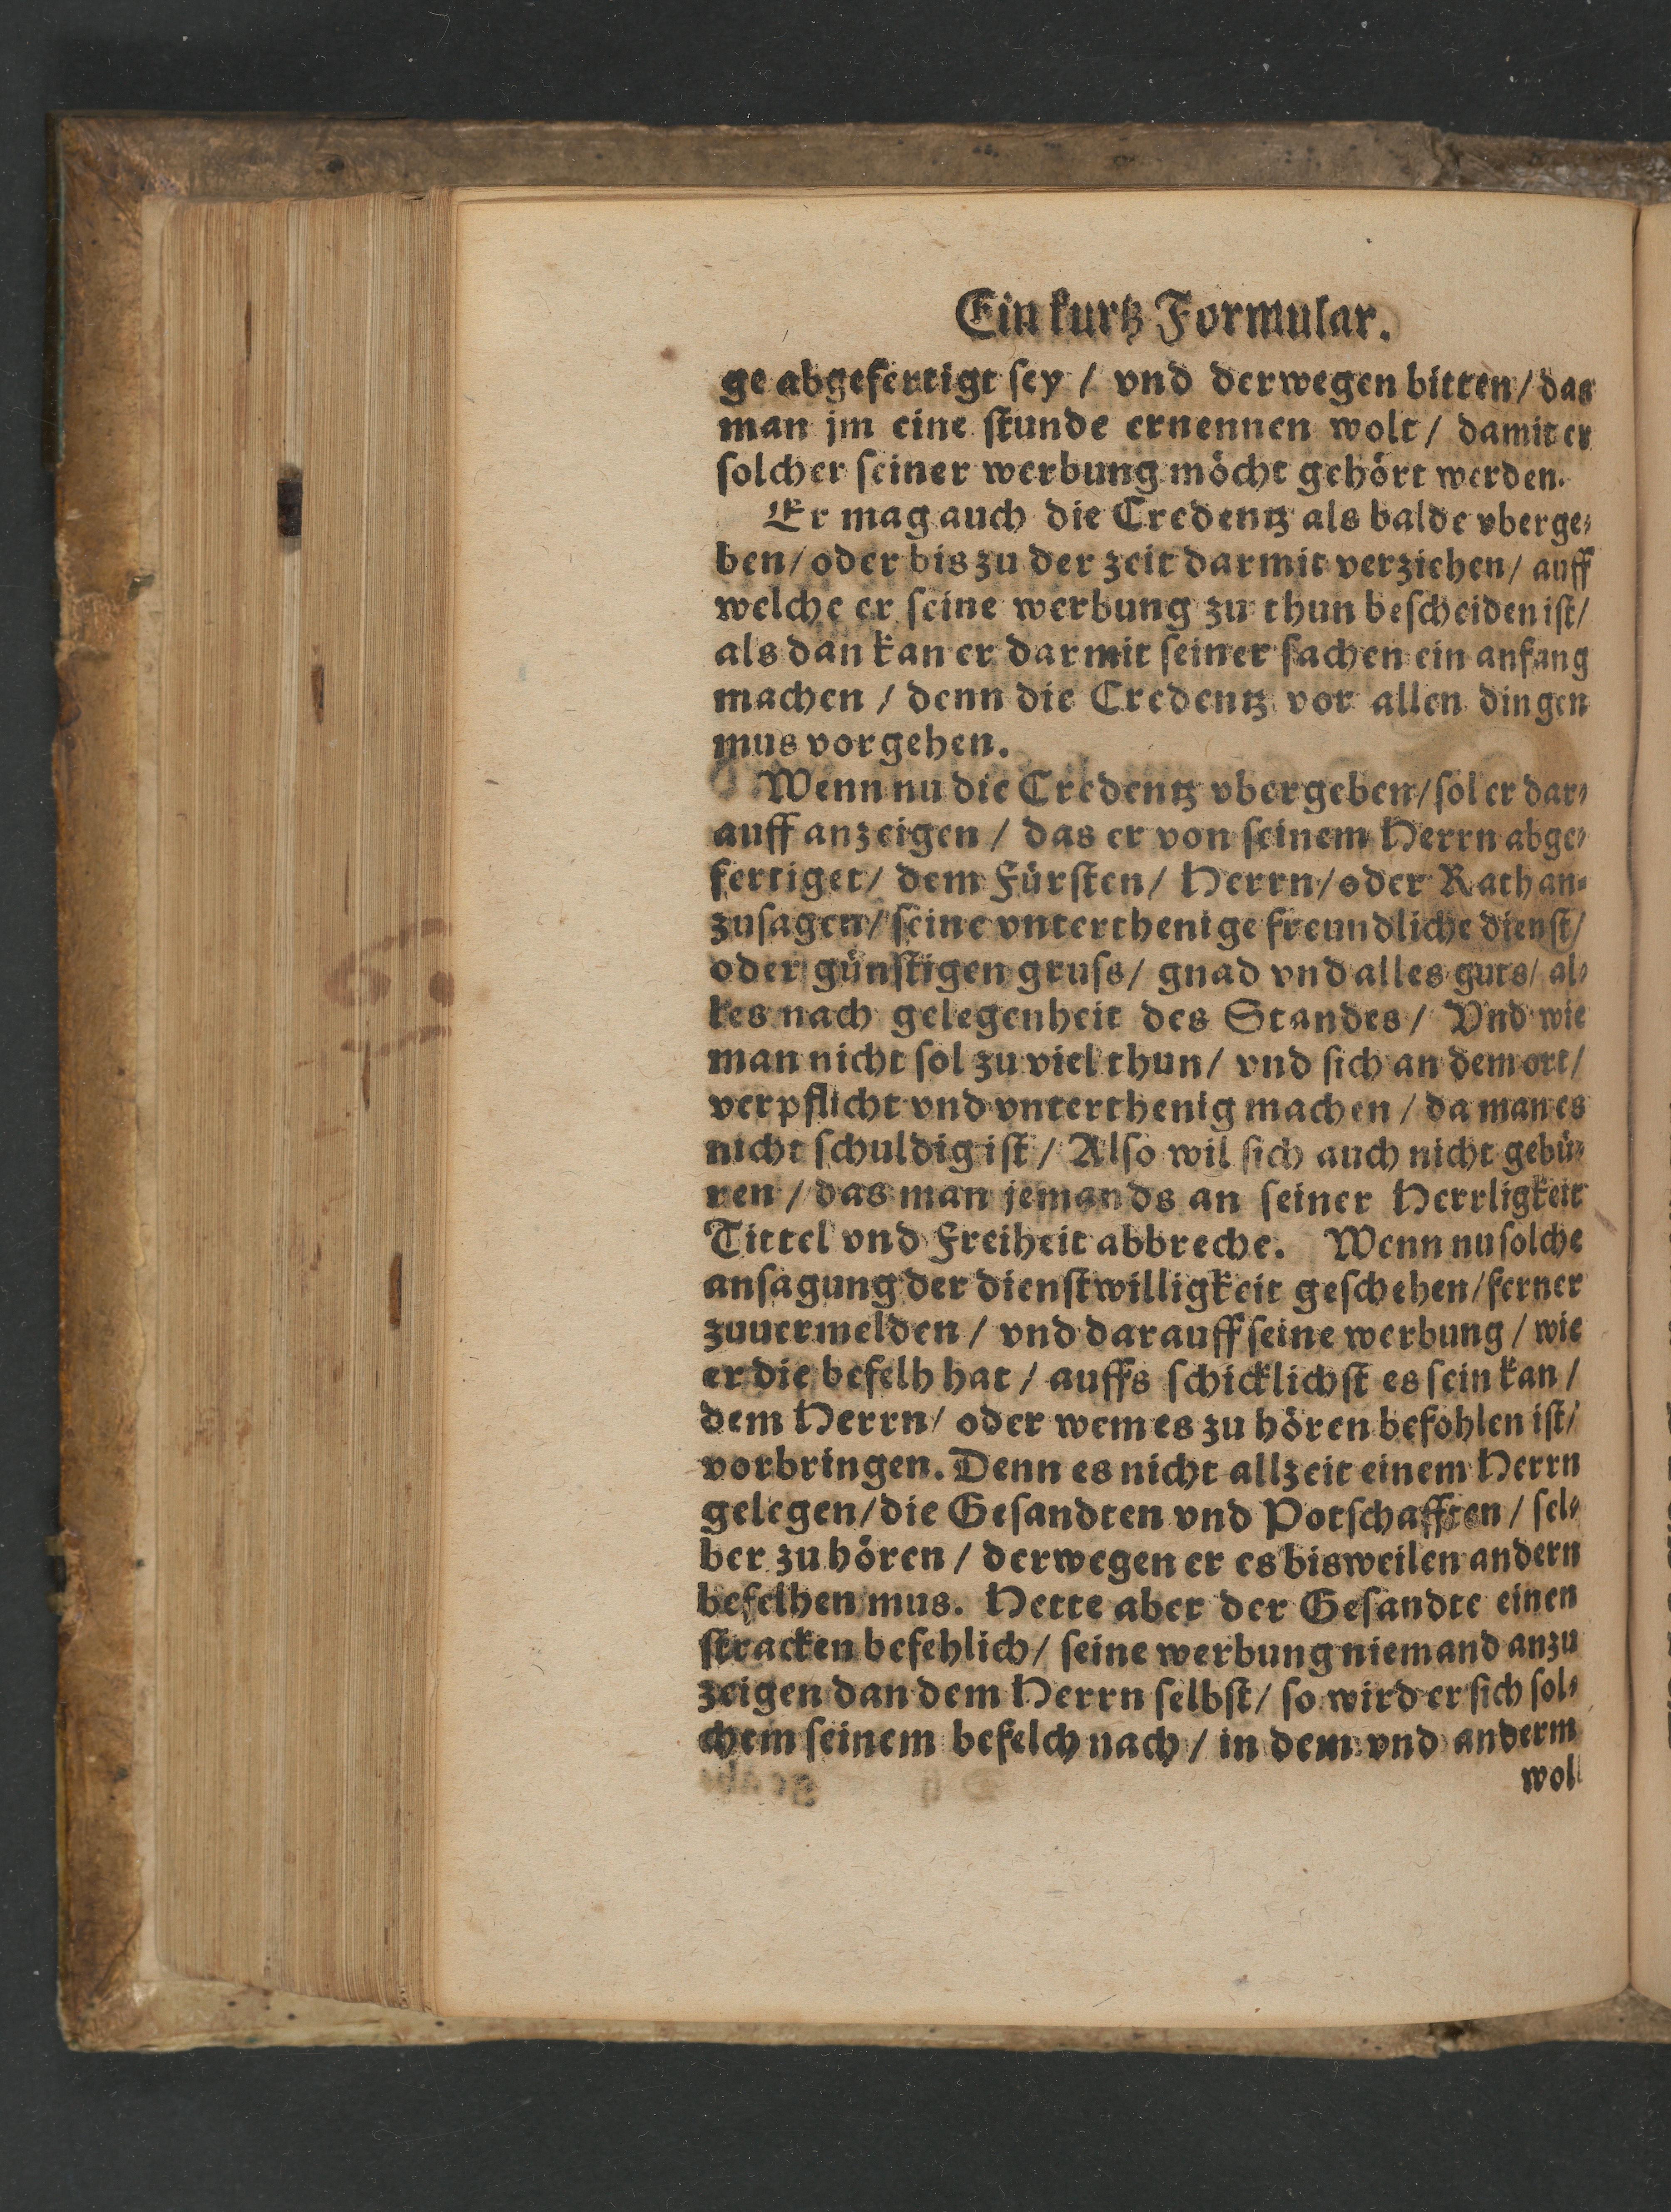 Ein kurtz Formular.
ge abgefertigt ſey / vnd derwegen bitten / das
man jm eine ſtunde ernennen wolt / damit er
ſolcher ſeiner werbung möcht gehört werden.
Er mag auch die Credentz als balde vberge⸗
ben / oder bis zu der zeit darmit verziehen / auff
welche er ſeine werbung zu thun beſcheiden iſt /
als dan kan er darmit ſeiner ſachen ein anfang
machen / denn die Credentz vor allen dingen
mus vorgehen.
Wenn nu die Credentz vbergeben / ſol er dar⸗
auff anzeigen / das er von ſeinem Herrn abge⸗
fertiget / dem Fürſten / Herrn / oder Rath an⸗
zuſagen / ſeine vnterthenige freundliche dienſt /
oder günſtigen gruſs / gnad vnd alles guts / al⸗
les nach gelegenheit des Standes / Vnd wie
man nicht ſol zu viel thun / vnd ſich an dem ort /
verpflicht vnd vnterthenig machen / da man es
nicht ſchuldig iſt / Alſo wil ſich auch nicht gebü⸗
ren / das man jemands an ſeiner Herrligkeit
Tittel vnd Freiheit abbreche. Wenn nu ſolche
anſagung der dienſtwilligkeit geſchehen / ferner
zuuermelden / vnd darauff ſeine werbung / wie
er die befelh hat / auffs ſchicklichſt es ſein kan /
dem Herrn / oder wem es zu hören befohlen iſt /
vorbringen. Denn es nicht allzeit einem Herrn
gelegen / die Geſandten vnd Potſchafften / ſel⸗
ber zu hören / derwegen er es bisweilen andern
befelhen mus. Hette aber der Geſandte einen
ſtracken befehlich / ſeine werbung niemand anzu
zeigen dan dem Herrn ſelbſt / ſo wird er ſich ſol⸗
chem ſeinem befelch nach / in dem vnd anderm
wol